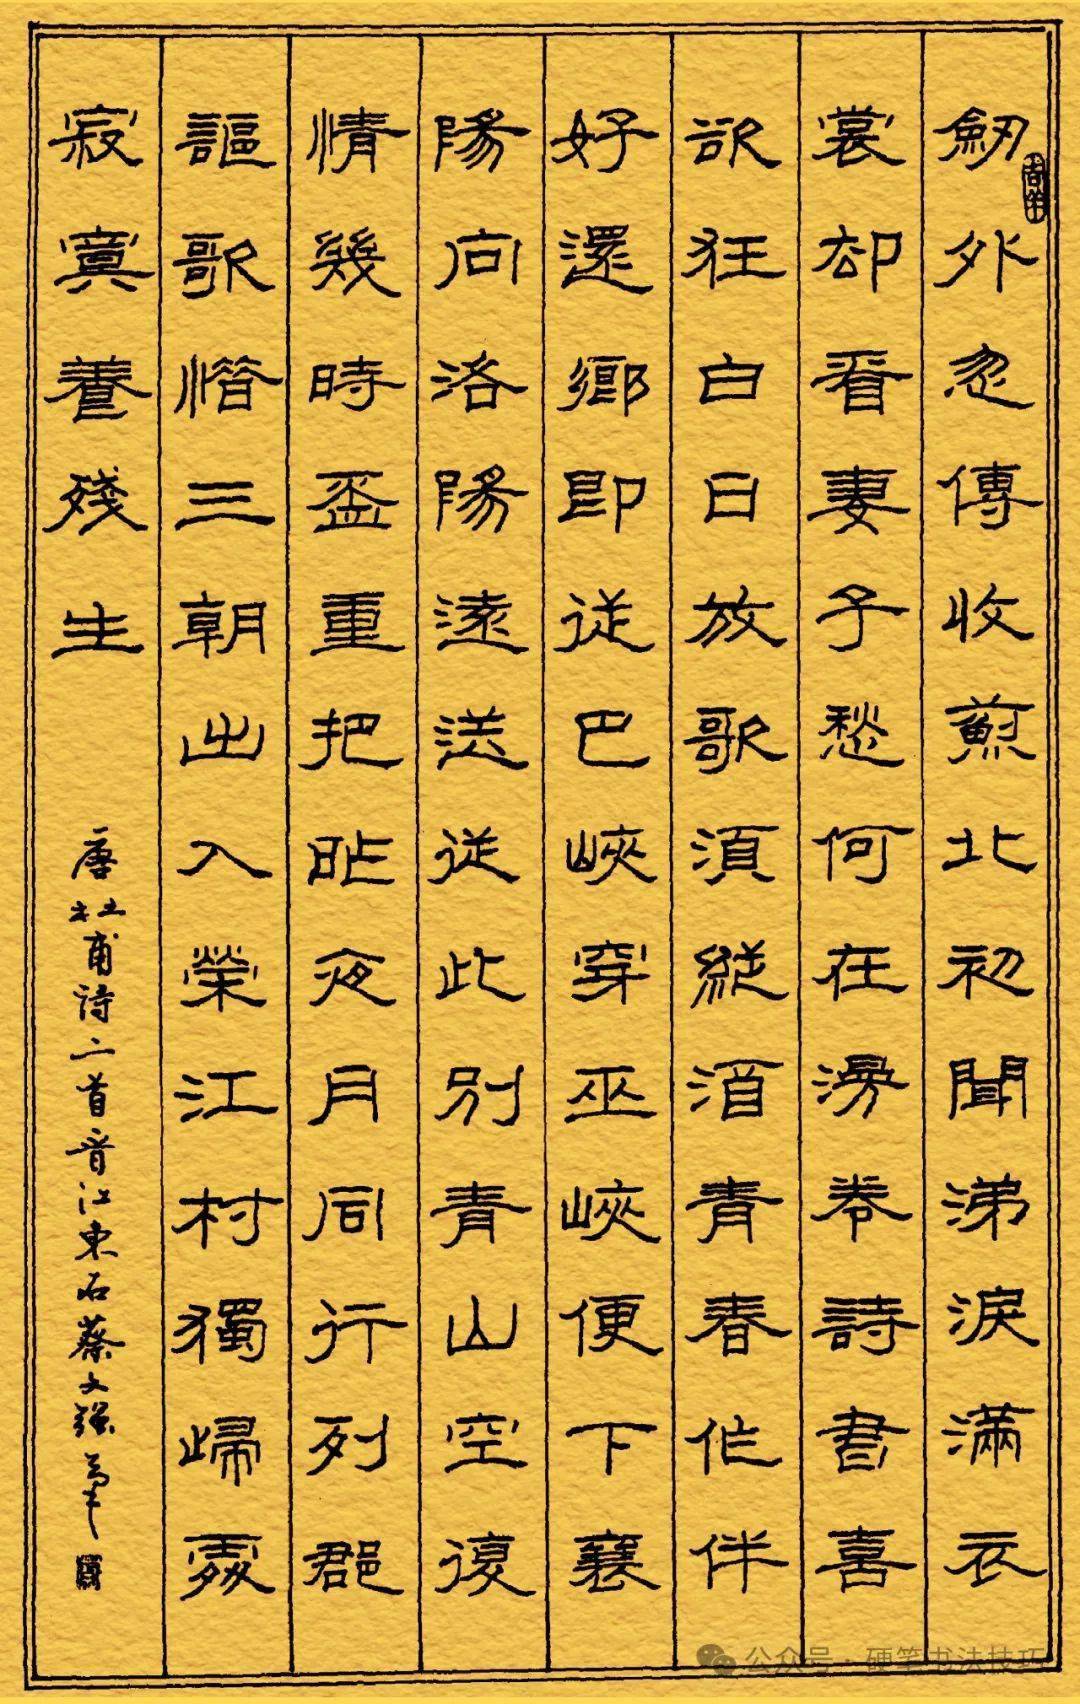 劒外忽傳收薊北初聞涕淚滿衣
裳却看妻子愁何在漫卷詩書喜
欲狂白日放歌須縱酒青春作伴
好還鄉即從巴峽穿巫峽便下襄
陽向洛陽遠送從此別青山空復
情幾時盃重把昨夜月同行列郡
謳歌惜三朝出入榮江村獨歸處
寂寞養殘生
唐杜甫詩二首晉江東石蔡文强
公众号 · 硬笔书法技巧